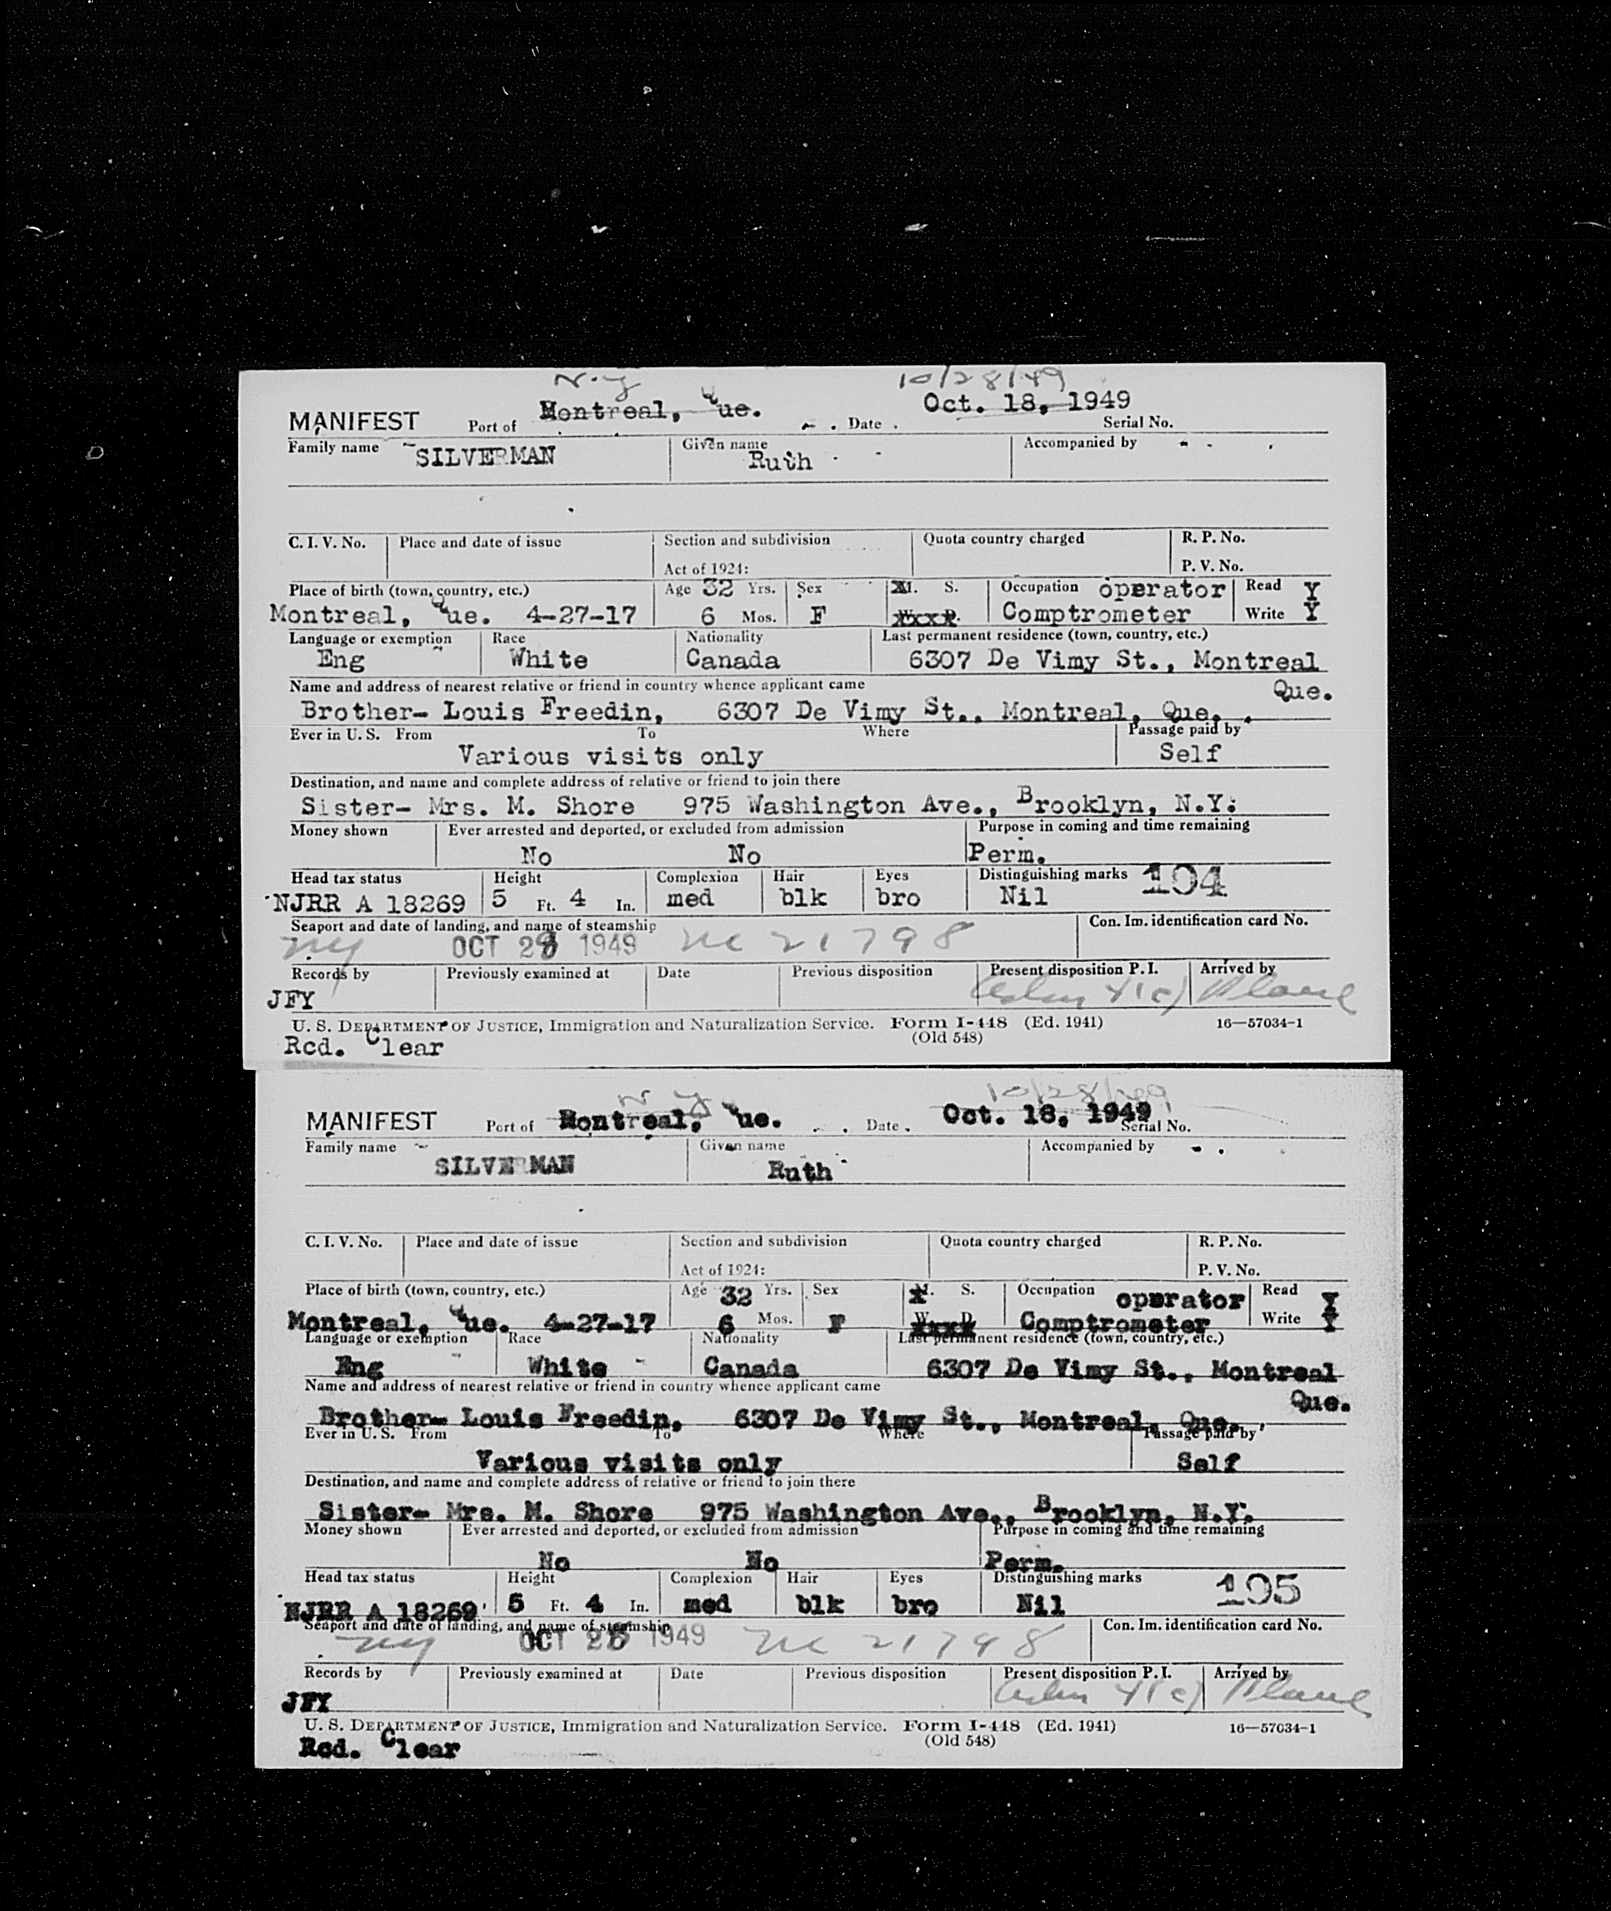 N.Y 10/28/49
MANIFEST Port of Montreal, Que. Date Oct. 18, 1949 Serial No.
Family name SILVERMAN Given name Ruth Accompanied by
C. I. V. No. Place and date of issue Section and subdivision Quota country charged R. P. No.
Act of 1924: P. V. No.
Place of birth (town, country, etc.) Age 32 Yrs. Sex M. S. Occupation operator Read Y
Montreal, Que. 4-27-17 6 Mos. F Comptrometer Write Y
Language or exemption Race Nationality Last permanent residence (town, country, etc.)
Eng White Canada 6307 De Vimy St., Montreal
Name and address of nearest relative or friend in country whence applicant came Que.
Brother- Louis Freedin, 6307 De Vimy St., Montreal, Que.
Ever in U. S. From To Where Passage paid by
Various visits only Self
Destination, and name and complete address of relative or friend to join there
Sister- Mrs. M. Shore 975 Washington Ave., Brooklyn, N.Y.
Money shown Ever arrested and deported, or excluded from admission Purpose in coming and time remaining
No No Perm.
Head tax status Height Complexion Hair Eyes Distinguishing marks 104
NJRR A 18269 5 Ft. 4 In. med blk bro Nil
Seaport and date of landing, and name of steamship Con. Im. identification card No.
NY OCT 28 1949 21798
Records by Previously examined at Date Previous disposition Present disposition P. I. Arrived by
JFY Adm 4(c) Plane
U. S. DEPARTMENT OF JUSTICE, Immigration and Naturalization Service. Form I-448 (Ed. 1941) 16—57034-1
(Old 548)
Rcd. Clear
N Y 10/28/49
MANIFEST Port of Montreal, Que. Date Oct. 18, 1949 Serial No.
Family name SILVERMAN Given name Ruth Accompanied by
C. I. V. No. Place and date of issue Section and subdivision Quota country charged R. P. No.
Act of 1924: P. V. No.
Place of birth (town, country, etc.) Age 32 Yrs. Sex M. S. Occupation operator Read Y
Montreal, Que. 4-27-17 6 Mos. F Comptrometer Write Y
Language or exemption Race Nationality Last permanent residence (town, country, etc.)
Eng White Canada 6307 De Vimy St., Montreal
Name and address of nearest relative or friend in country whence applicant came Que.
Brother- Louis Freedin, 6307 De Vimy St., Montreal, Que.
Ever in U. S. From To Where Passage paid by
Various visits only Self
Destination, and name and complete address of relative or friend to join there
Sister- Mrs. M. Shore 975 Washington Ave., Brooklyn, N.Y.
Money shown Ever arrested and deported, or excluded from admission Purpose in coming and time remaining
No No Perm.
Head tax status Height Complexion Hair Eyes Distinguishing marks 105
NJRR A 18269 5 Ft. 4 In. med blk bro Nil
Seaport and date of landing, and name of steamship Con. Im. identification card No.
NY OCT 28 1949 21798
Records by Previously examined at Date Previous disposition Present disposition P. I. Arrived by
JFY Adm 4(c) Plane
U. S. DEPARTMENT OF JUSTICE, Immigration and Naturalization Service. Form I-448 (Ed. 1941) 16—57034-1
(Old 548)
Rcd. Clear